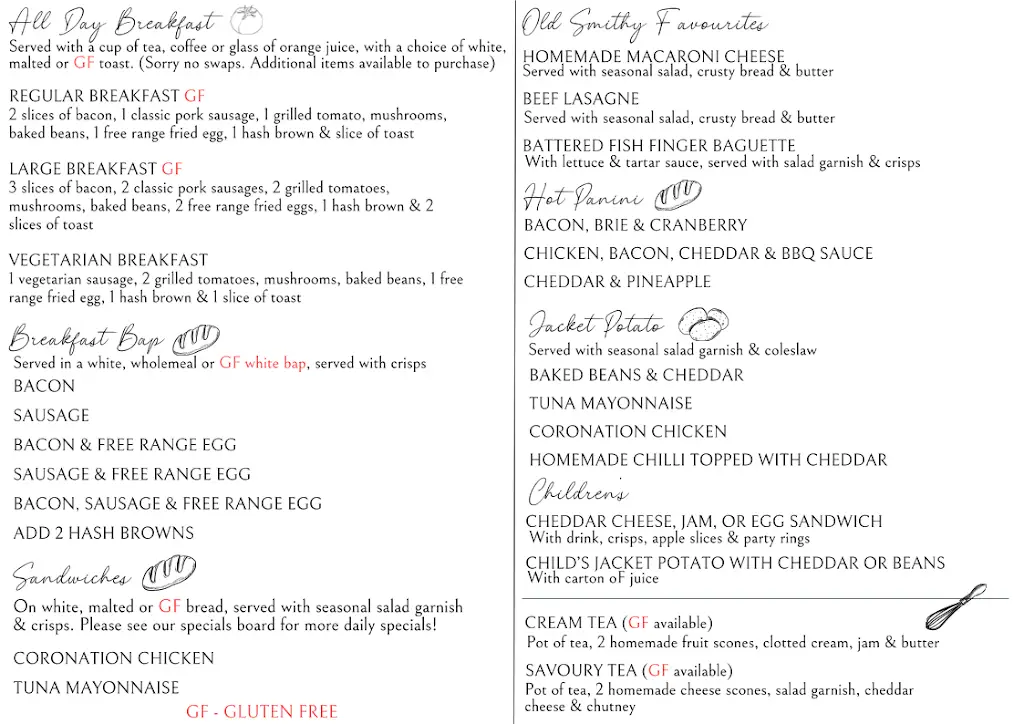 All Day Breakfast
Served with a cup of tea, coffee or glass of orange juice, with a choice of white,
malted or GF toast. (Sorry no swaps. Additional items available to purchase)
REGULAR BREAKFAST GF
2 slices of bacon, 1 classic pork sausage, 1 grilled tomato, mushrooms,
baked beans, 1 free range fried egg, 1 hash brown & slice of toast
LARGE BREAKFAST GF
3 slices of bacon, 2 classic pork sausages, 2 grilled tomatoes,
mushrooms, baked beans, 2 free range fried eggs, 1 hash brown & 2
slices of toast
VEGETARIAN BREAKFAST
1 vegetarian sausage, 2 grilled tomatoes, mushrooms, baked beans, 1 free
range fried egg, 1 hash brown & 1 slice of toast
Breakfast Bap
Served in a white, wholemeal or GF white bap, served with crisps
BACON
SAUSAGE
BACON & FREE RANGE EGG
SAUSAGE & FREE RANGE EGG
BACON, SAUSAGE & FREE RANGE EGG
ADD 2 HASH BROWNS
Sandwiches
On white, malted or GF bread, served with seasonal salad garnish
& crisps. Please see our specials board for more daily specials!
CORONATION CHICKEN
TUNA MAYONNAISE
GF - GLUTEN FREE
Old Smithy Favourites
HOMEMADE MACARONI CHEESE
Served with seasonal salad, crusty bread & butter
BEEF LASAGNE
Served with seasonal salad, crusty bread & butter
BATTERED FISH FINGER BAGUETTE
With lettuce & tartar sauce, served with salad garnish & crisps
Hot Panini
BACON, BRIE & CRANBERRY
CHICKEN, BACON, CHEDDAR & BBQ SAUCE
CHEDDAR & PINEAPPLE
Jacket Potato
Served with seasonal salad garnish & coleslaw
BAKED BEANS & CHEDDAR
TUNA MAYONNAISE
CORONATION CHICKEN
HOMEMADE CHILLI TOPPED WITH CHEDDAR
Childrens'
CHEDDAR CHEESE, JAM, OR EGG SANDWICH
With drink, crisps, apple slices & party rings
CHILD'S JACKET POTATO WITH CHEDDAR OR BEANS
With carton oF juice
CREAM TEA (GF available)
Pot of tea, 2 homemade fruit scones, clotted cream, jam & butter
SAVOURY TEA (GF available)
Pot of tea, 2 homemade cheese scones, salad garnish, cheddar
cheese & chutney